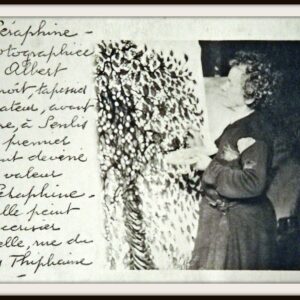 Séraphine -
otographiée
Albert
noit, tapissier
ateur, avant
re, à Senlis
premier
nt devenu
valeur
Séraphine -
elle peint
cerisier
elle, rue du
Thiphaine